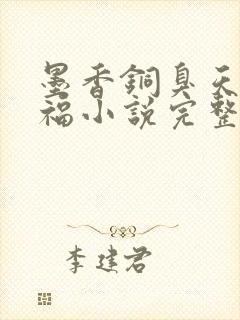 墨香銅臭天
福小說完整
李建君